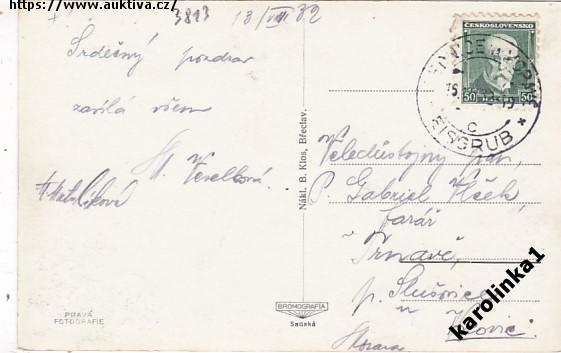 https://www.auktiva.cz/
3813
13/VIII 32
Srdečný pozdrav
zasílá všem
M. Veselková.
ČESKOSLOVENSKO
50 50
EISGRUB
C
Nákl. B. Klos, Břeclav.
Veledůstojný pán,
P. Gabriel Vlček,
farář
Trnavě,
p. Slušovice
u
Morava
PRAVÁ
FOTOGRAFIE
BROMOGRAFIA
Sadská
karolinka1